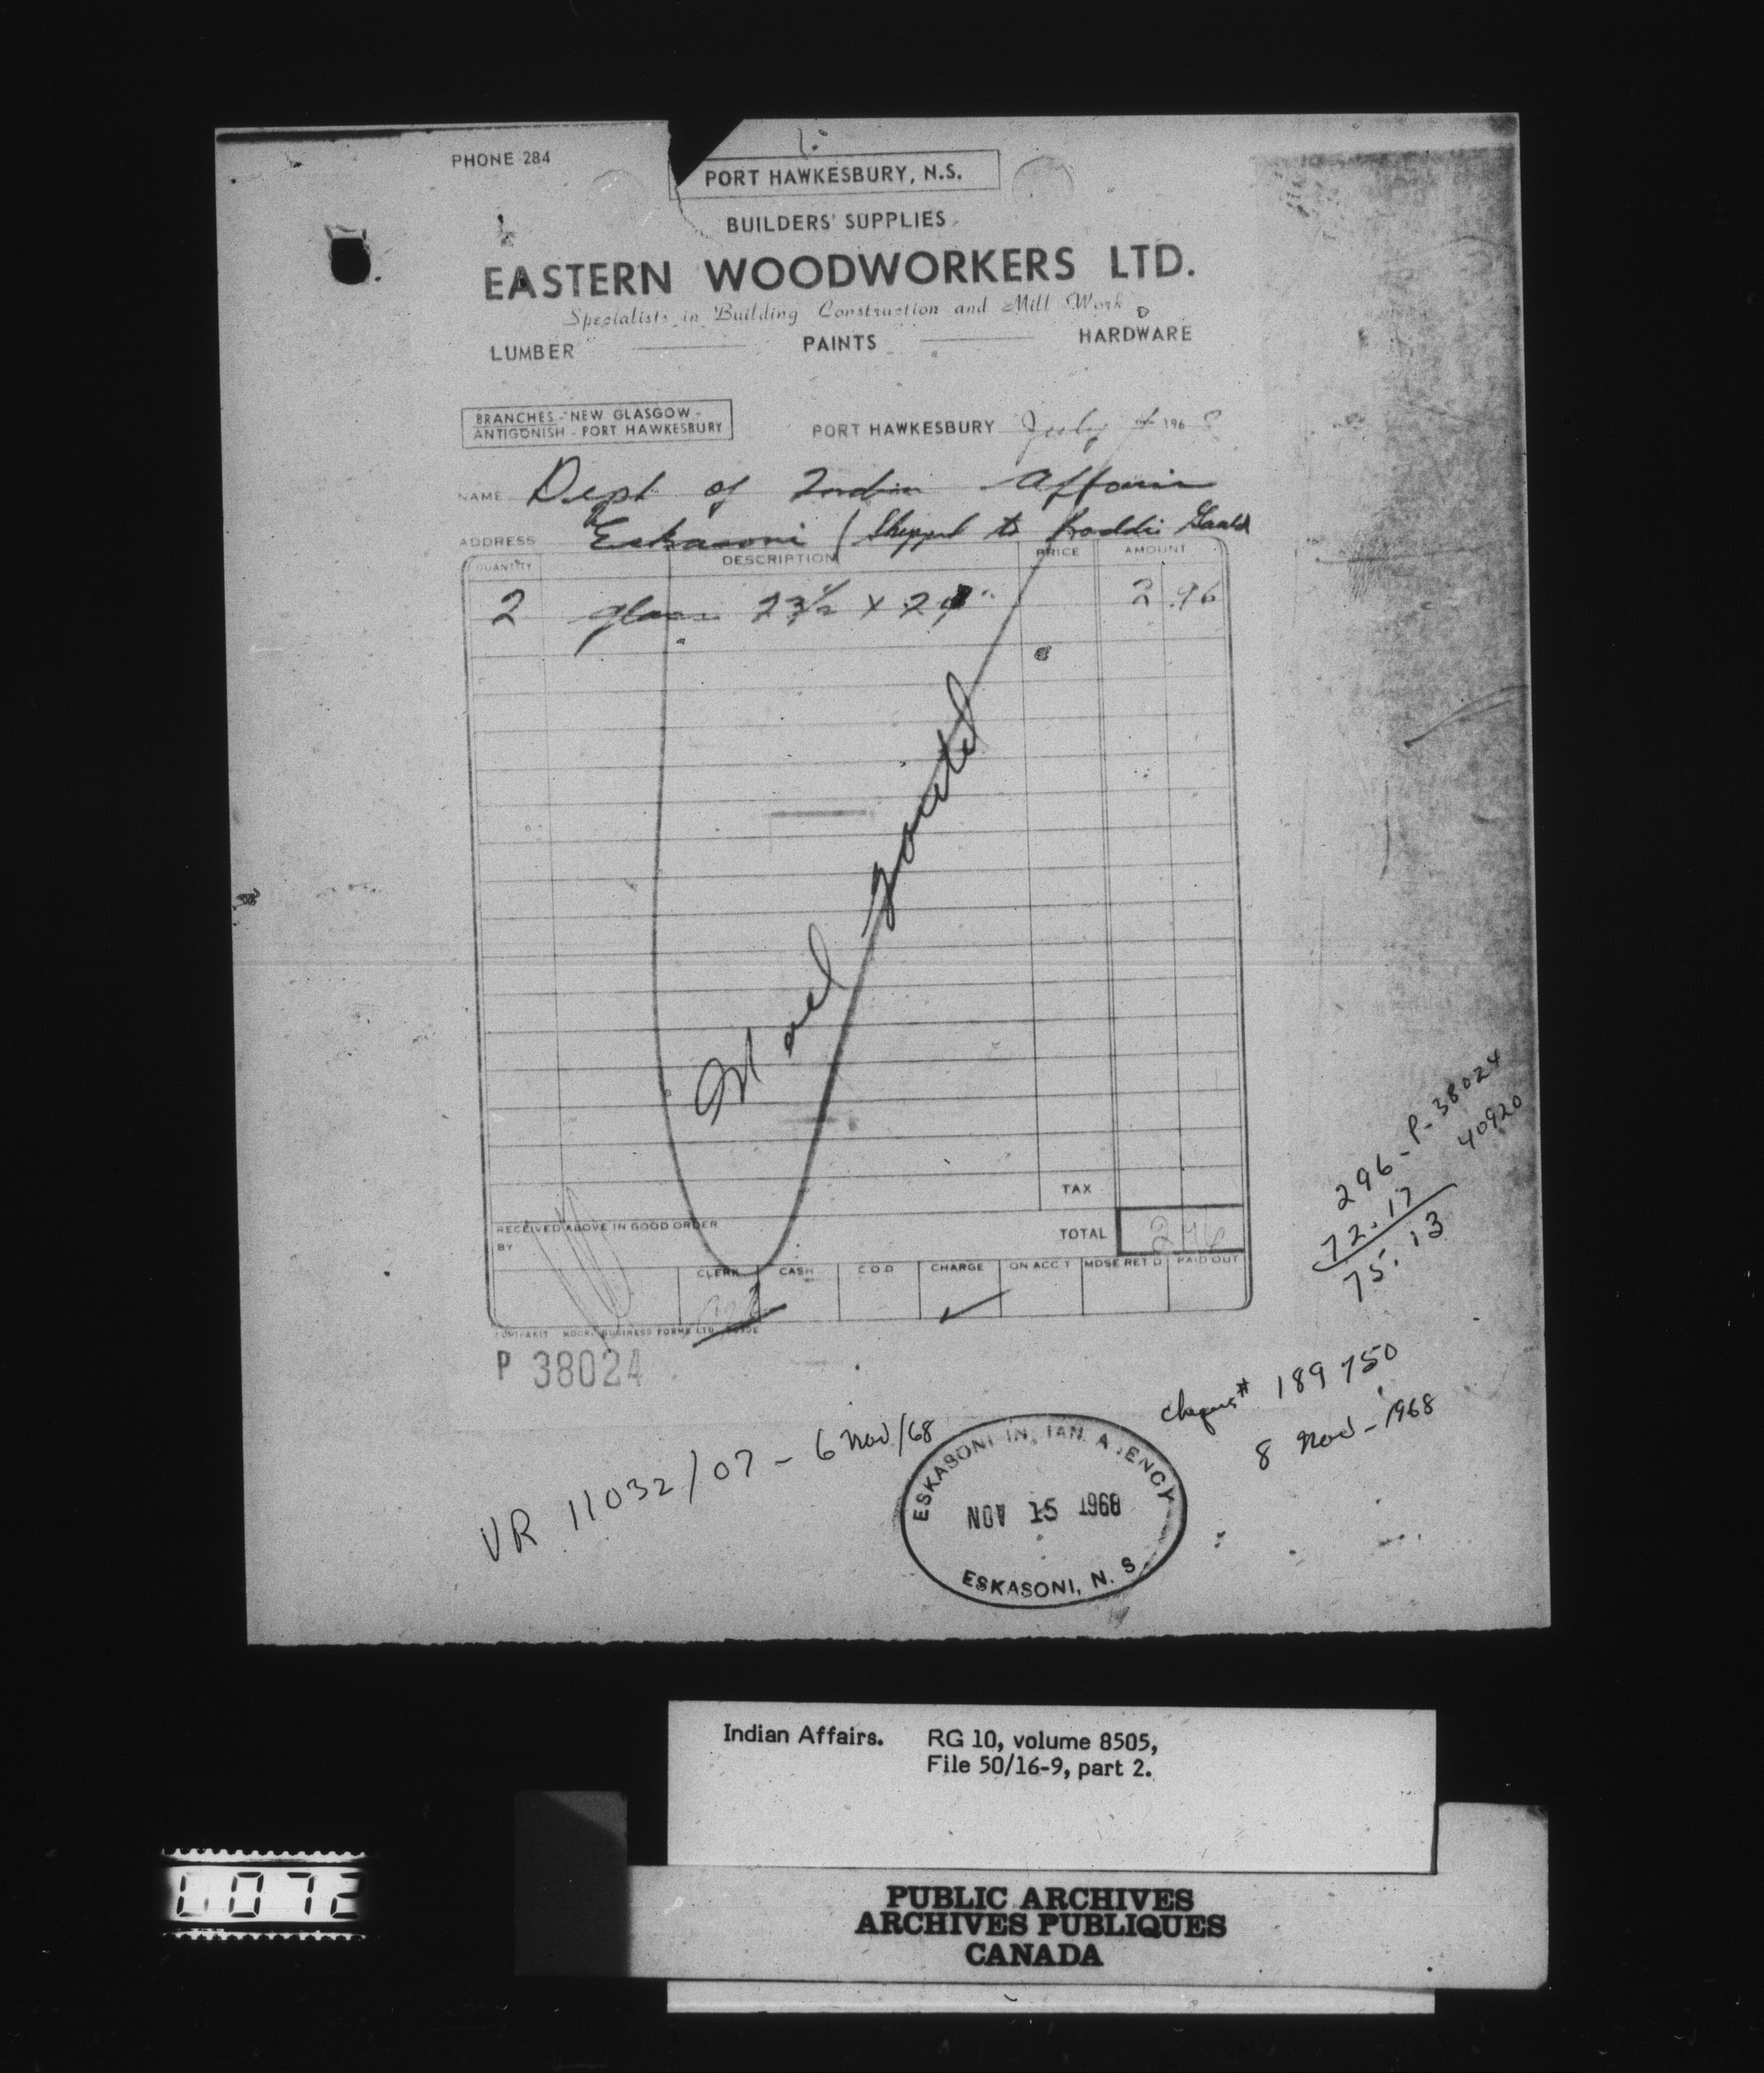 PHONE 284
PORT HAWKESBURY, N.S.
BUILDERS' SUPPLIES
EASTERN WOODWORKERS LTD.
Specialists in Building Construction and Mill Work
LUMBER PAINTS HARDWARE
BRANCHES - NEW GLASGOW -
ANTIGONISH - PORT HAWKESBURY
PORT HAWKESBURY July 196
NAME Dept of Indian Affairs
ADDRESS Eskasoni / Shipped to
QUANTITY DESCRIPTION PRICE AMOUNT
2 glass 23½ X 2 2.96
Noel
TAX
RECEIVED ABOVE IN GOOD ORDER
BY
TOTAL 2
CLERK CASH C.O.D CHARGE ON ACC'T MDSE RET'D PAID OUT
MOORE BUSINESS FORMS LTD.
P 38024
296 - P-38024
72.17 40920
75.13
cheque # 189750
8 Nov - 1968
VR 11032/07 - 6 Nov/68
ESKASONI IN IAN A ENCY
NOV 15 1968
ESKASONI, N. S
Indian Affairs. RG 10, volume 8505,
File 50/16-9, part 2.
0072
PUBLIC ARCHIVES
ARCHIVES PUBLIQUES
CANADA